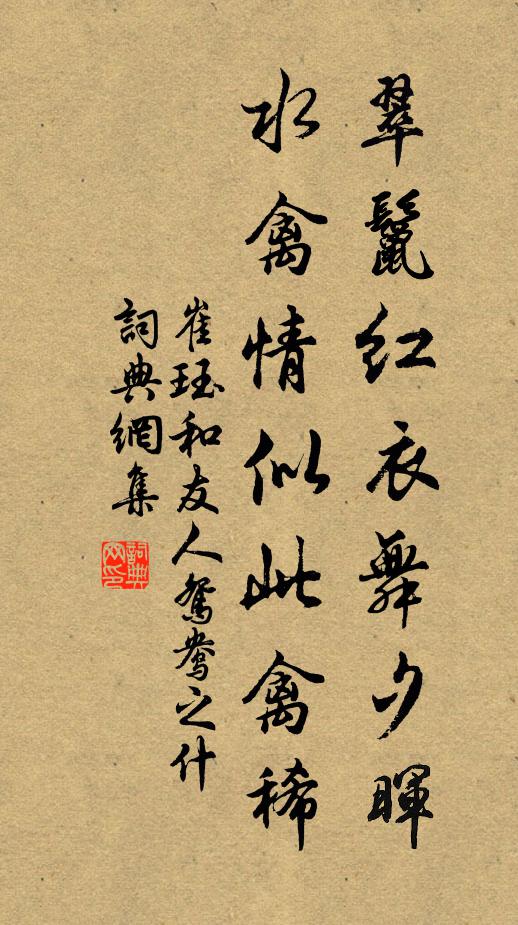 翠鬣紅衣舞夕暉
水禽情似此禽稀
崔珏和友人鴛鴦之什
詞典網集
詞典網印